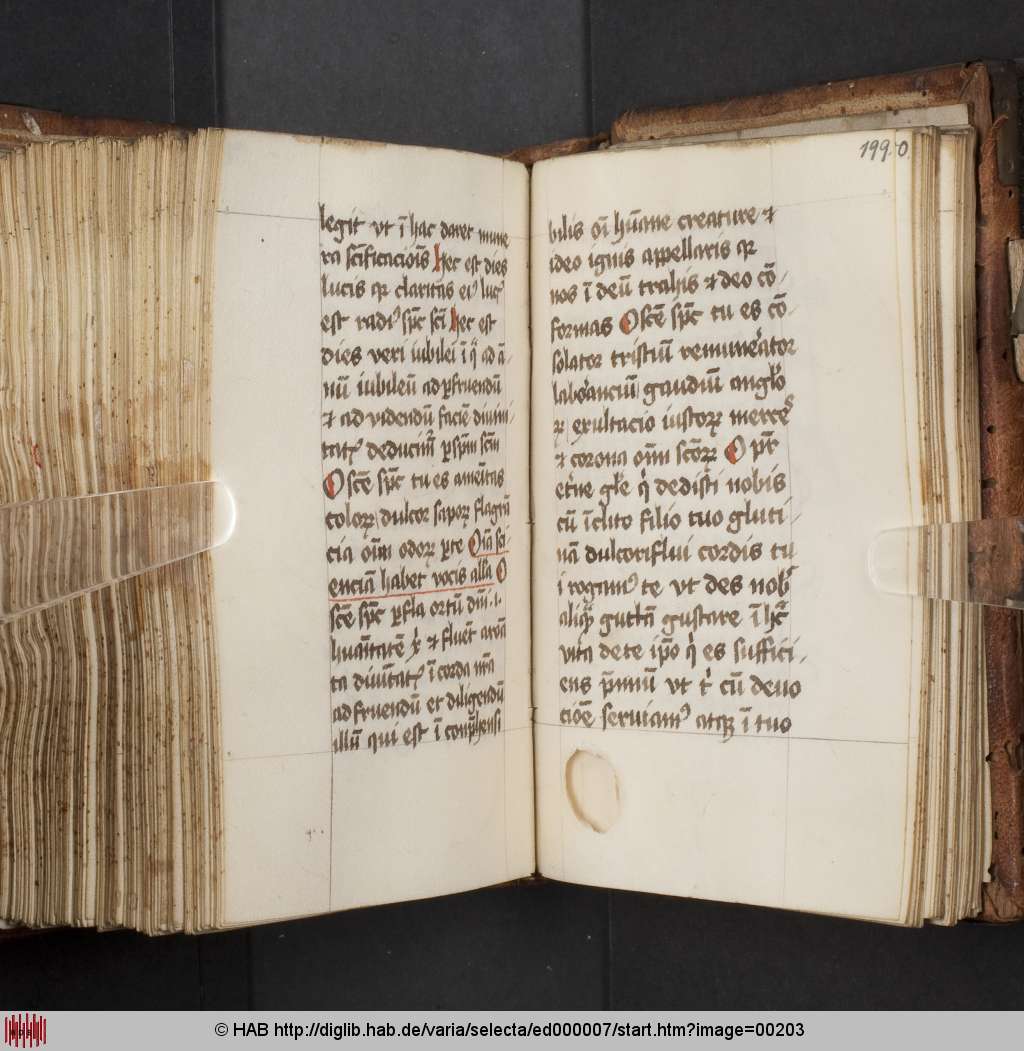 legit vt ī hac daret mune
ra scīficacioīs Hec est dies
lucis qꝛ claritas eiꝰ luc᷒
est radiꝰ spc̄ sc̄i Hec est
dies veri iubilei ī q̄ ad ā-
nū iubileū ad ꝑfruendū
⁊ ad videndū faciē diuini-
tat᷒ deducim̄ ꝑ spm̄ scm̄
O sc̄e spc̄ tu es amenitas
colorꝝ dulcor saporꝝ flagrā
cia oīm odorꝝ ꝑ te Oīa sci-
enciā habet vocis alla O
sc̄e spc̄ ꝑfla ortū dm̄.i.
huaītatē ⁊ fluēt aroā
ta diuītat᷒ ī corda nr̄a
ad fruendū et diligendū
illū qui est ī conp̄hensi
199. O
bilis oī hūane creature ⁊
ideo ignis appellaris qꝛ
nos ī deū trahis ⁊ deo cō-
formas O sc̄e spc̄ tu es cō-
solator tristiū remunerator
laboranciū gaudiū anglo
ꝝ exultacio iustorꝝ merces
⁊ corona oīm sc̄orꝝ O pr̄
et̄ne gl̄e q̄ dedisti nobis
cū īclito filio tuo gluti-
nā dulcoriflui cordis tu
i rogamꝰ te vt des nob᷒
aliquā guttā gustare ī hac
vita de te ip̄o q̄ es suffici-
ens p̄miū vt t cū deuo
cioē seruiamꝰ atqꝫ ī tuo
© HAB http://diglib.hab.de/varia/selecta/ed000007/start.htm?image=00203